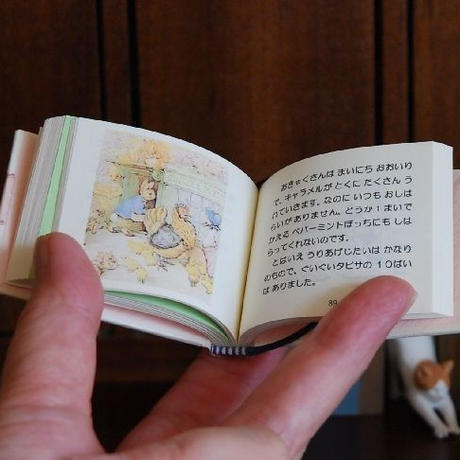 おきゃくさんは まいにち おおいり
で、キャラメルが とくに たくさん う
れていきます。なのに いつも おしは
らいが ありません。どうか 1まいで
かえる ペパーミントぽっちにも しは
らってくれないのです。
とはいえ うりあげじたいは かなり
のもので、ぐいぐいタビサの 10ばい
は ありました。
89